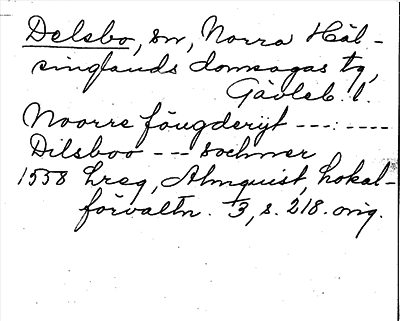 Delsbo, sn, Norra Häl-
singlands domsagas tg,
Gävleb. l.
Noorre föugderijt ---:----
Dilsboo --- sochner
1558 hreg, Almquist, Lokal-
förvaltn. 3, s. 218. orig.